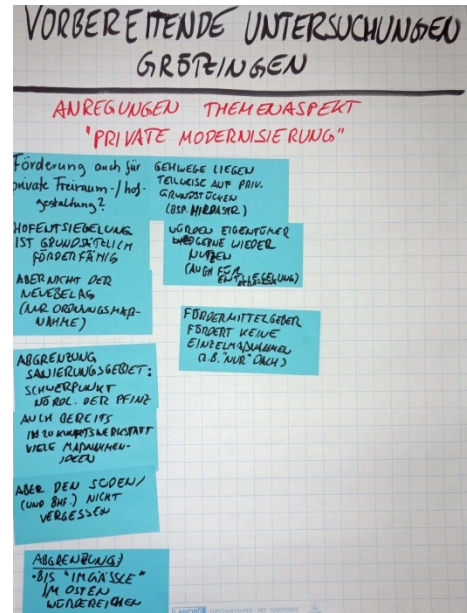 VORBEREITENDE UNTERSUCHUNGEN
GRÖTZINGEN
ANREGUNGEN THEMENASPEKT
"PRIVATE MODERNISIERUNG"
Förderung auch für
private Freiraum-/hof-
gestaltung?
HOFENTSIEGELUNG
IST GRUNDSÄTZLICH
FÖRDERFÄHIG
ABER NICHT DER
NEUE BELAG
(NUR ORDNUNGSMAß-
NAHME)
ABGRENZUNG
SANIERUNGSGEBIET:
SCHWERPUNKT
NÖRDL. DER PFINZ
AUCH BEREITS
IM ZUKUNFTSWERKSTATT
VIELE MAßNAHMEN-
IDEEN
ABER DEN SÜDEN/
(UND BHF.) NICHT
VERGESSEN
ABGRENZUNG
BIS "IM GÄSSLE"
IM OSTEN
GEHWEGE LIEGEN
TEILWEISE AUF PRIV.
GRUNDSTÜCKEN
(BSP.
WÜRDEN EIGENTÜMER
GERNE WIEDER
NUTZEN
(AUCH FÜR
ENTSIEGELUNG)
FÖRDERMITTELGEBER
FÖRDERT KEINE
EINZELMAßNAHMEN
(Z.B. "NUR" DACH)